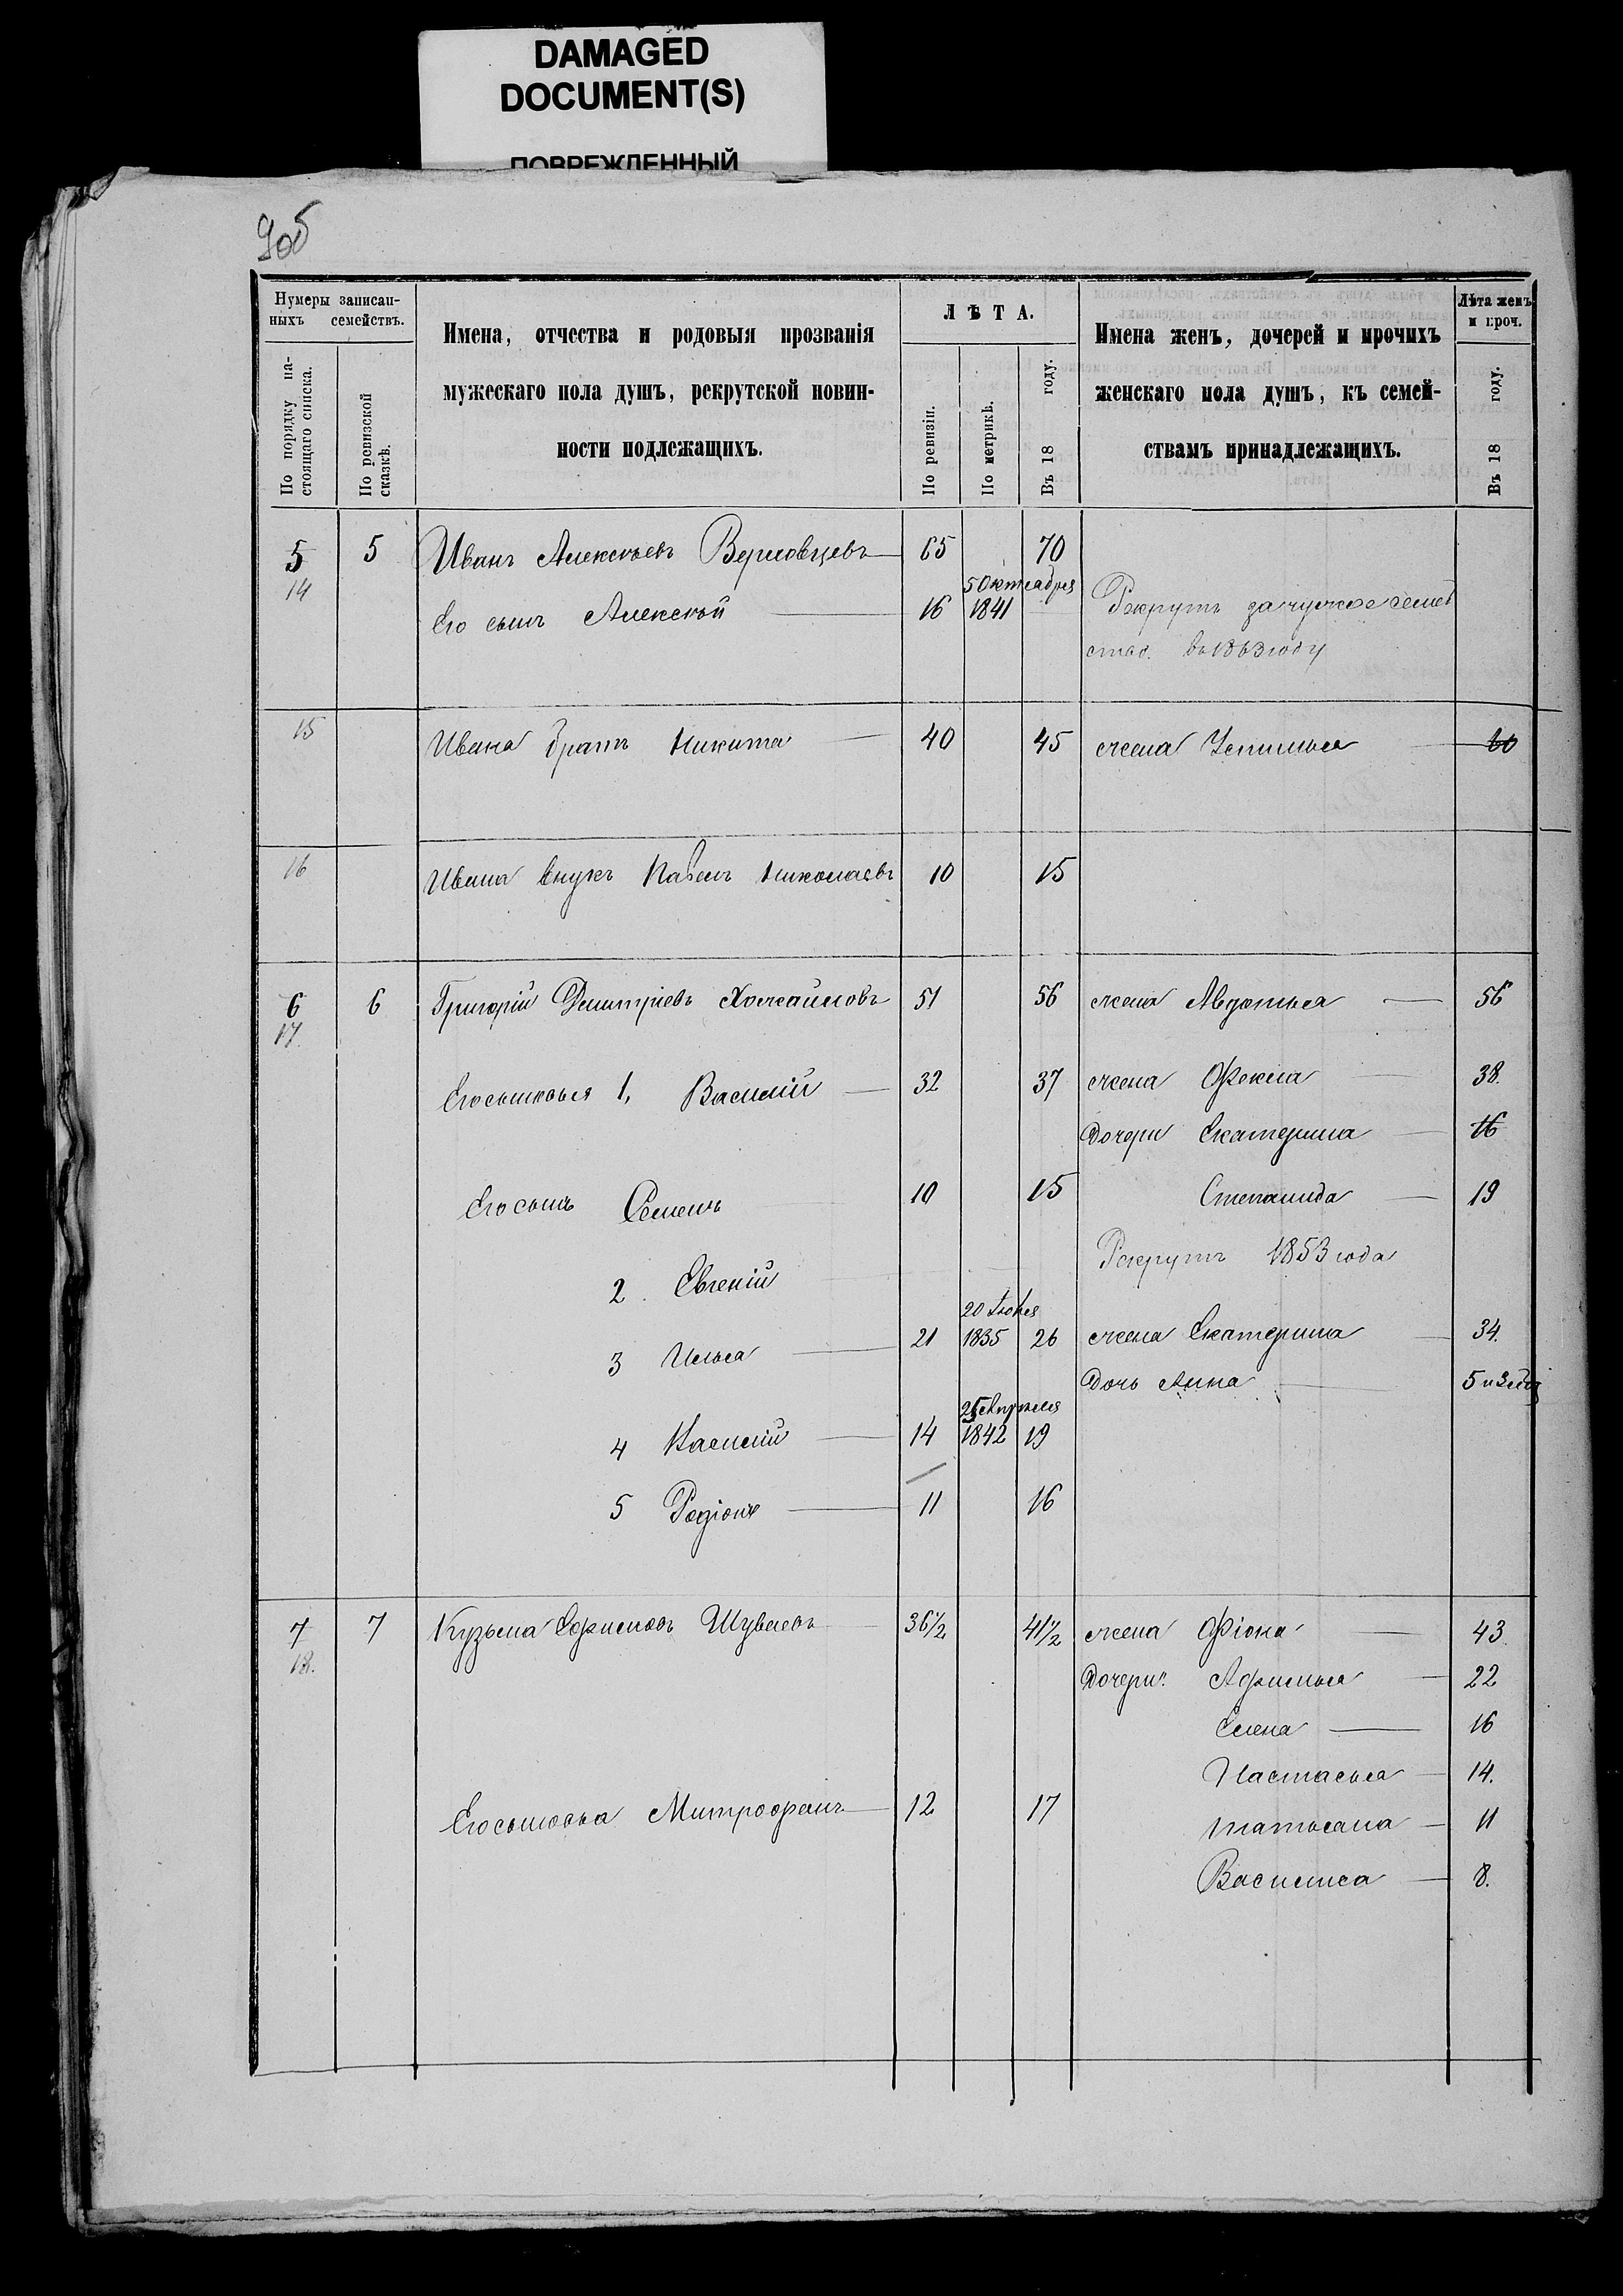 DAMAGED
DOCUMENT(S)
ПОВРЕЖДЕННЫЙ
9об
Нумеры записан-
ныхъ семействъ.
По порядку на-
стоящаго списка.
По ревизской
сказкѣ.
Имена, отчества и родовыя прозванія
мужескаго пола душъ, рекрутской повин-
ности подлежащихъ.
ЛѢТА.
По ревизіи.
По метрикѣ.
Въ 18 году.
Имена женъ, дочерей и прочихъ
женскаго пола душъ, къ семей-
ствамъ принадлежащихъ.
Лѣта женъ
и проч.
Въ 18 году.
5 5 Иванъ Алексѣевъ 65 70
14
Его сынъ Алексѣй 16 5 Октября 1841
Рекрутъ за чужое семей
ство въ 1863 году
15 Ивана братъ Никита 40 45 жена 60
16 Ивана внукъ Павелъ Николаевъ 10 15
6 6 Григорій Дмитріевъ 51 56 жена Авдотья 56
17.
Его сыновья 1, Василій 32 37 жена Фекла 38.
Дочери Екатерина 16
Его сынъ Семенъ 10 15 Степанида 19
2 Евгеній Рекрутъ 1853 года
3 Илья 21 20 1835 26 жена Екатерина 34.
Дочь Анна 5
4 14 Апрѣля 1842 19
5 Родіонъ 11 16
7 7 Кузьма Ефимовъ Шуваевъ 36½ 41½ жена Фіона 43.
18.
Дочери: Афимья 22
Елена 16
Настасья 14.
Его сыновья Митрофанъ 12 17 Татьяна 11
Василиса 8.